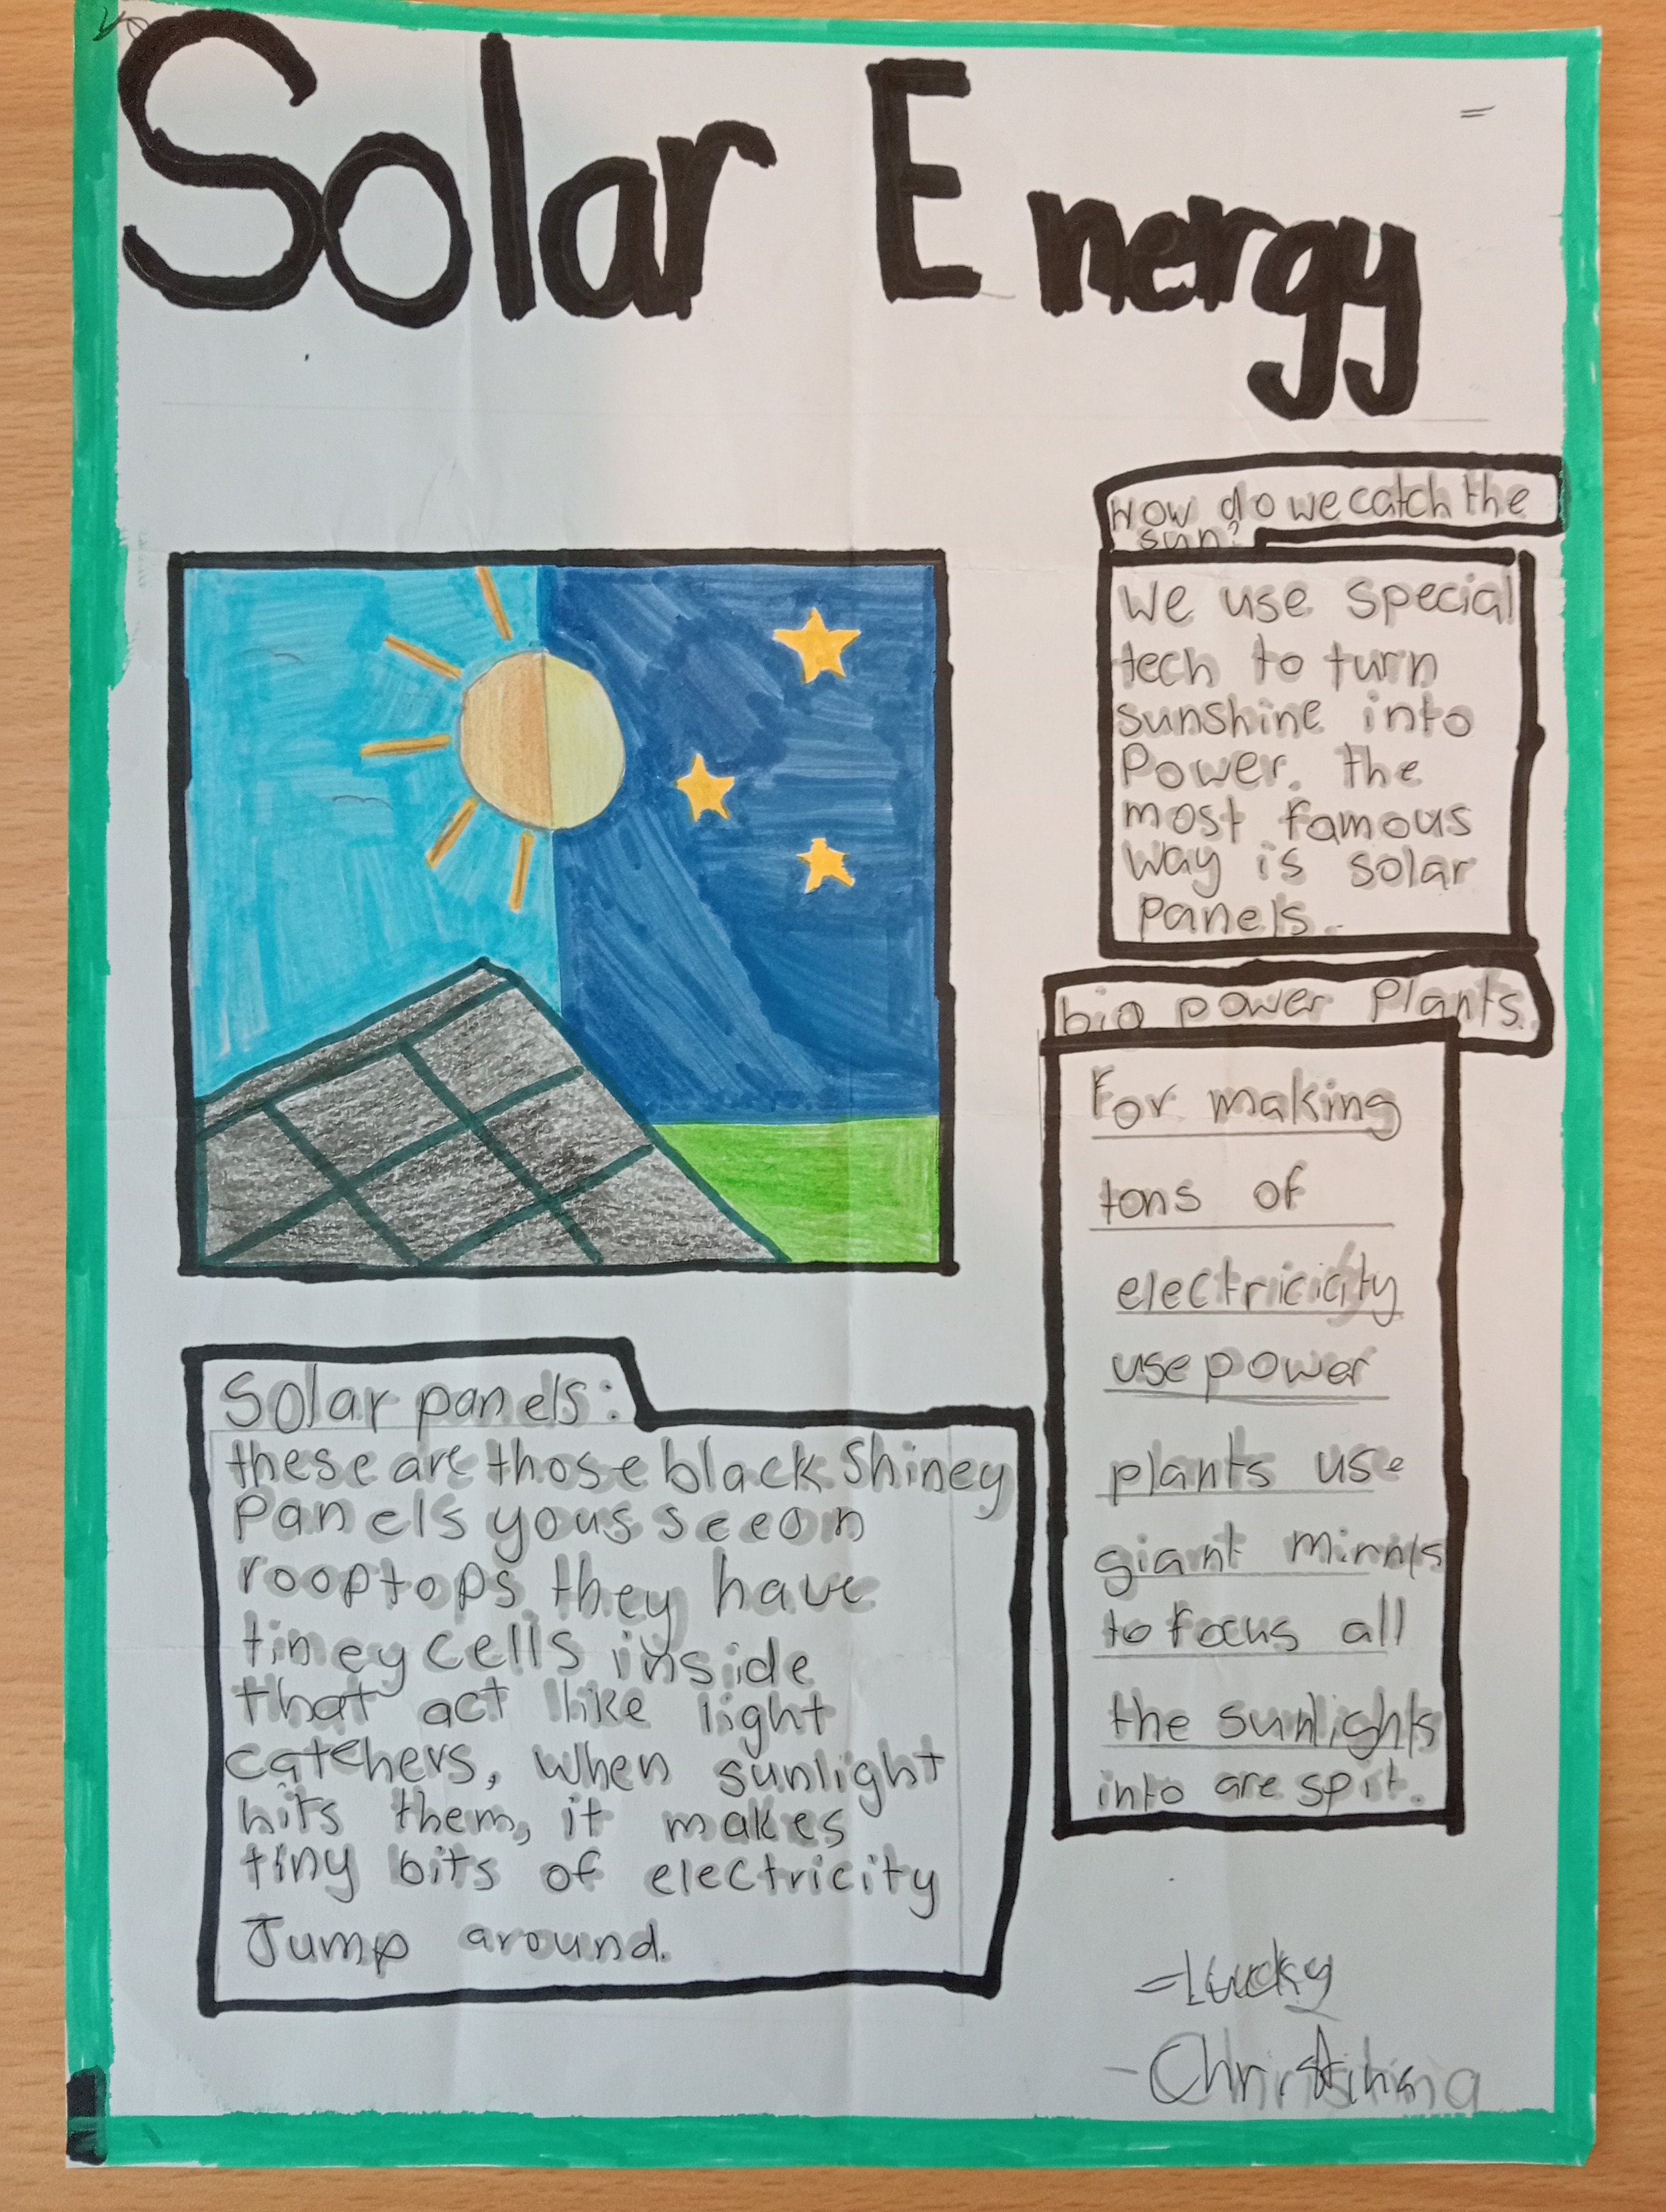 Solar Energy
How do we catch the
sun?
We use special
tech to turn
sunshine into
Power. the
most famous
way is solar
panels.
big power Plants.
For making
tons of
electricicity
use power
plants use
giant
to focus all
the sunlights
into are spit.
Solar panels:
these are those black Shiney
Panels yous see on
rooptops they have
tiney cells inside
that act like light
catchers, when sunlight
hits them, it makes
tiny bits of electricity
Jump around.
=Lucky
-Christina